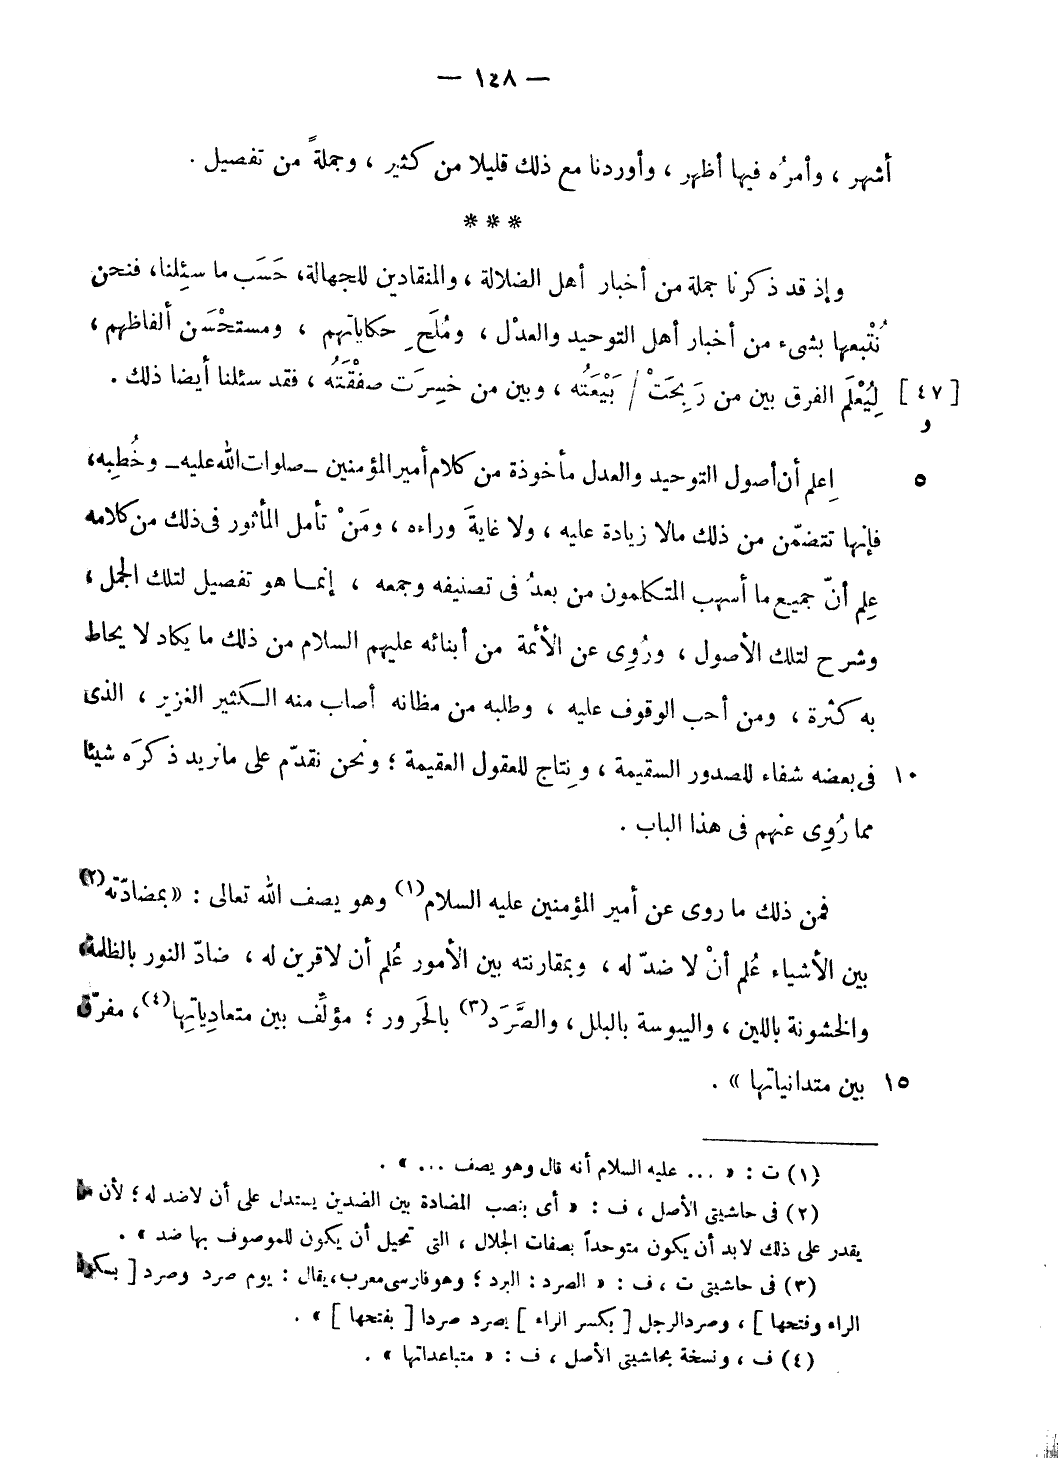 — ١٤٨ —
أشهر ، وأمرُه فيها أظهر ، وأوردنا مع ذلك قليلا من كثير ، وجملةً من تفصيل .
***
وإذ قد ذكرنا جملة من أخبار أهل الضلالة ، والمنقادين للجهالة، حَسَب ما سئِلنا، فنحن
نُتْبعها بشىء من أخبار أهل التوحيد والعدْل ، ومُلَحِ حكاياتهم ، ومستحْسَن ألفاظهم ،
[ ٤٧ ] لِيُعْلَم الفرق بين من رَبِحَتْ / بَيْعَتُه ، وبين من خسِرَت صفْقَتُه ، فقد سئلنا أيضا ذلك .
و
٥ اِعلم أن أصول التوحيد والعدل مأخوذة من كلام أمير المؤمنين _صلوات الله عليه_ وخُطبِه،
فإنها تتضمّن من ذلك مالا زيادة عليه ، ولا غايةَ وراءه ، ومَنْ تأمل المأثور فى ذلك من كلامه
عِلم أنّ جميع ما أسهب المتكلمون من بعدُ فى تصنيفه وجمعه ، إنما هو تفصيل لتلك الجمل ،
وشرح لتلك الأصول ، ورُوِى عن الأئمة من أبنائه عليهم السلام من ذلك ما يكاد لا يحاط
به كثرة ، ومن أحب الوقوف عليه ، وطلبه من مظانه أصاب منه الكثير الغزير ، الذى
١٠ فى بعضه شفاء للصدور السقيمة ، ونِتاج للعقول العقيمة ؛ ونحن نقدّم على مانريد ذكرَه شيئا
مما رُوِى عنهم فى هذا الباب .
فمن ذلك ما روى عن أمير المؤمنين عليه السلام(١) وهو يصف الله تعالى : «بمضادّته(٢)
بين الأشياء عُلم أنْ لا ضدّ له ، وبمقارنته بين الأمور عُلم أن لاقرين له ، ضادّ النور بالظلمة،
والخشونة باللين ، واليبوسة بالبلل ، والصَّرَد(٣) بالحَرور ؛ مؤلِّف بين متعادِياتِها(٤)، مفرّق
١٥ بين متدانياتها » .
(١) ت : « ... عليه السلام أنه قال وهو يصف ... » .
(٢) فى حاشيتى الأصل ، ف : « أى بنصب المضادة بين الضدين يستدل على أن لاضد له ؛ لأن ما
يقدر على ذلك لابد أن يكون متوحداً بصفات الجلال ، التى تحيل أن يكون للموصوف بها ضد » .
(٣) فى حاشيتى ت ، ف : « الصرد : البرد ؛ وهو فارسى معرب، يقال : يوم صرد وصرد [ بسكون
الراء وفتحها ] ، وصرد الرجل [ بكسر الراء ] يصرد صردا [ بفتحها ] » .
(٤) ف ، ونسخة بحاشيتى الأصل ، ف : « متباعداتها » .